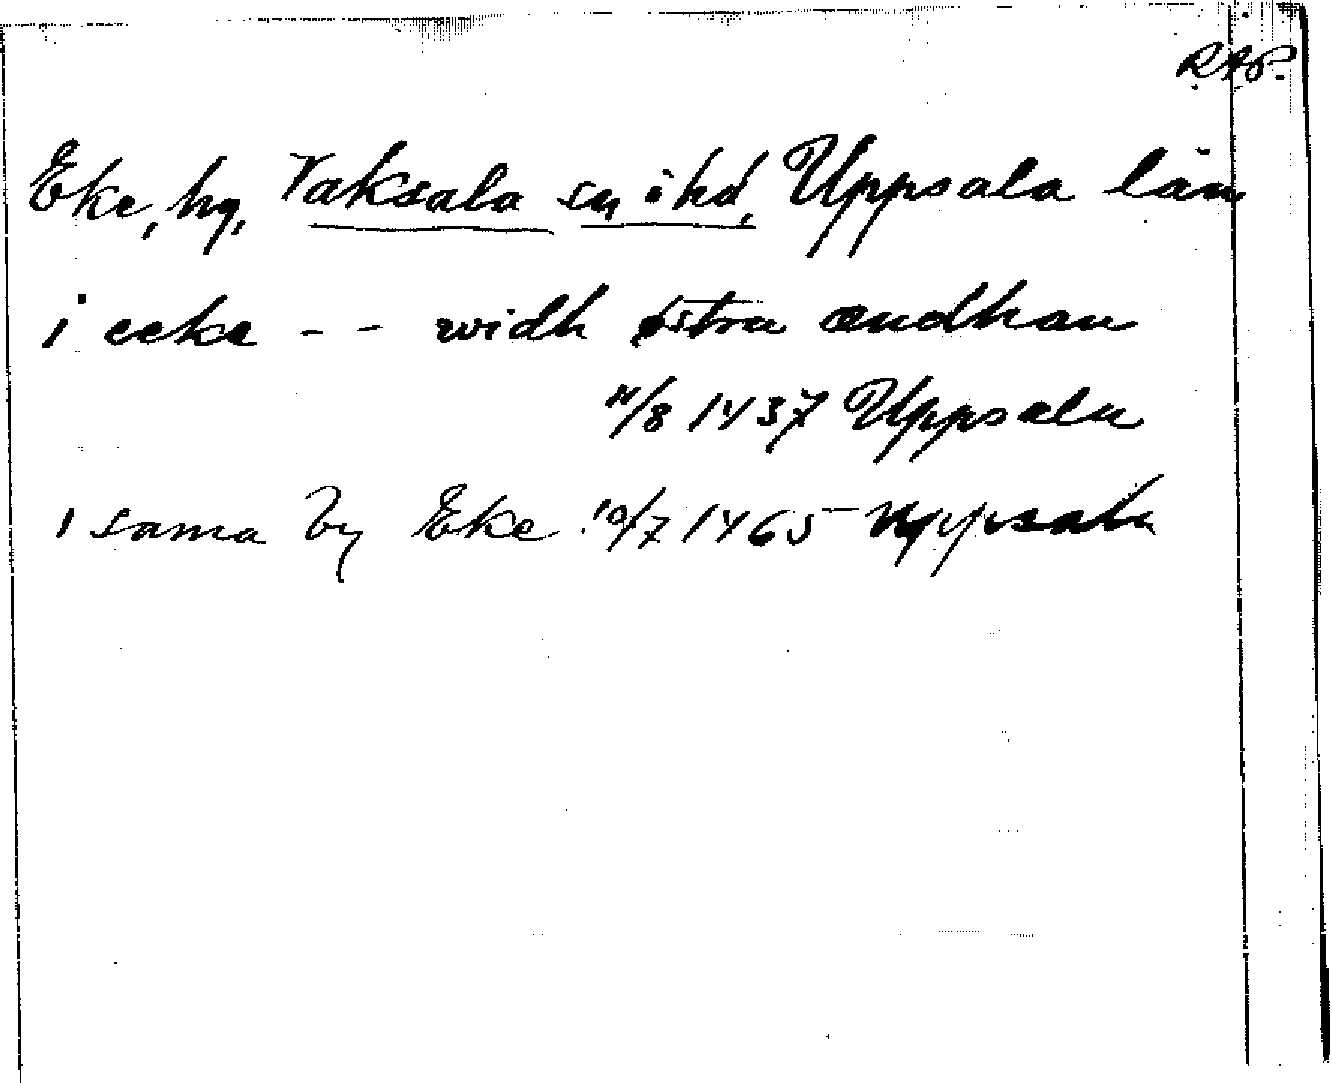 RAP.
Eke, hg, Vaksala sn o hd, Uppsala län
i eeke - - widh østra ændhan
11/8 1437 Uppsala
i sama by Eke 10/7 1465 Uppsala